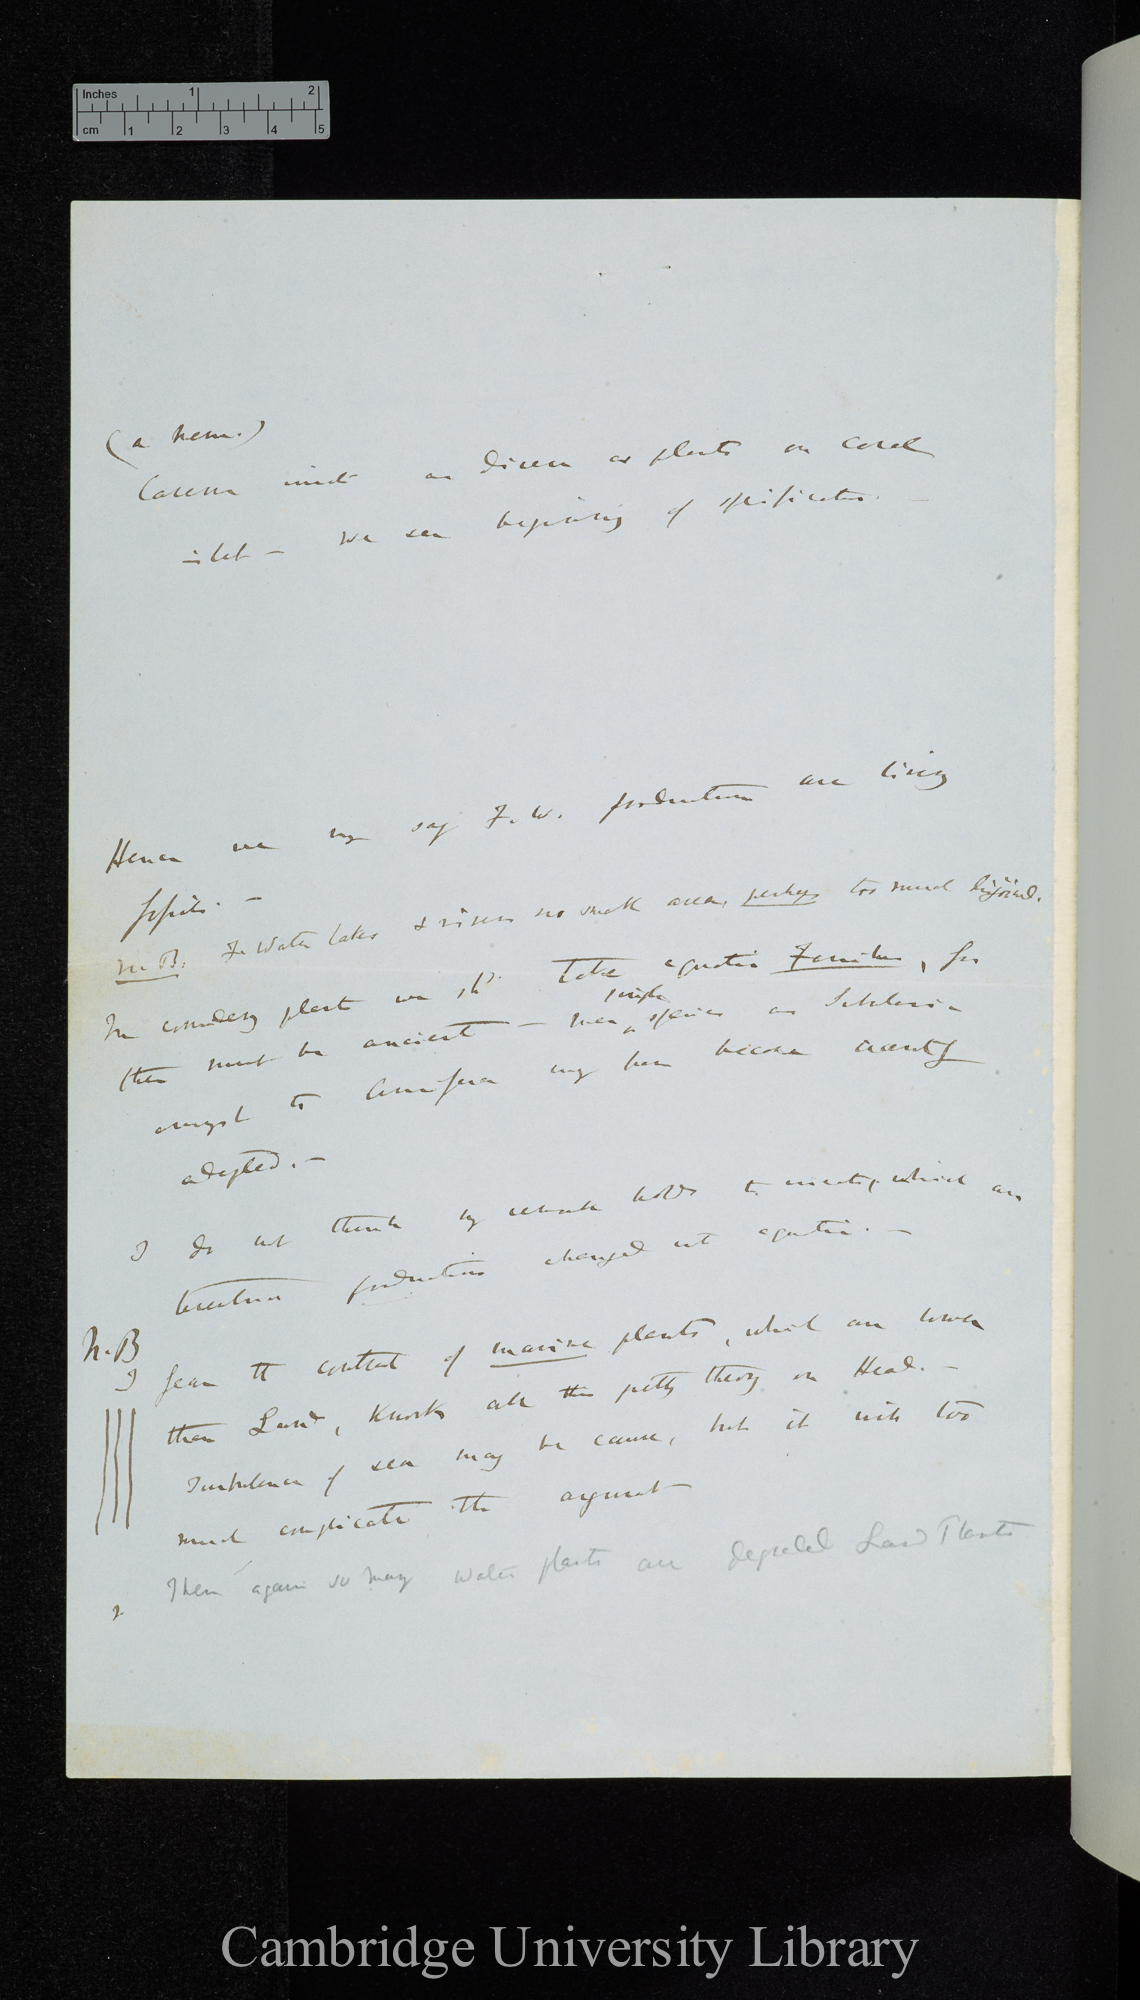 Inches 1 2
cm 1 2 3 4 5
(a hem.)
Cavern insects as diverse as plants on coral
islet — we see beginning of specification. —
Hence we may say F. W. productions are living
fossils. —
N.B. F. Water lakes & rivers so small area, perhaps too much disjoined.
In considering plants we shd. take aquatic Families, for
these must be ancient — mere single species as Subularia
amongst the Cruciferæ may have become recently
adapted. —
I do not think my remark holds to insects, which are
terrestrial productions changed into aquatic. —
N.B
I fear the contrast of marine plants, which are lower
than Land, knocks all this pretty theory on Head. —
Turbulence of sea may be cause, but it will too
much complicate the argument
Then again so many water plants are degraded Land Plants
Cambridge University Library